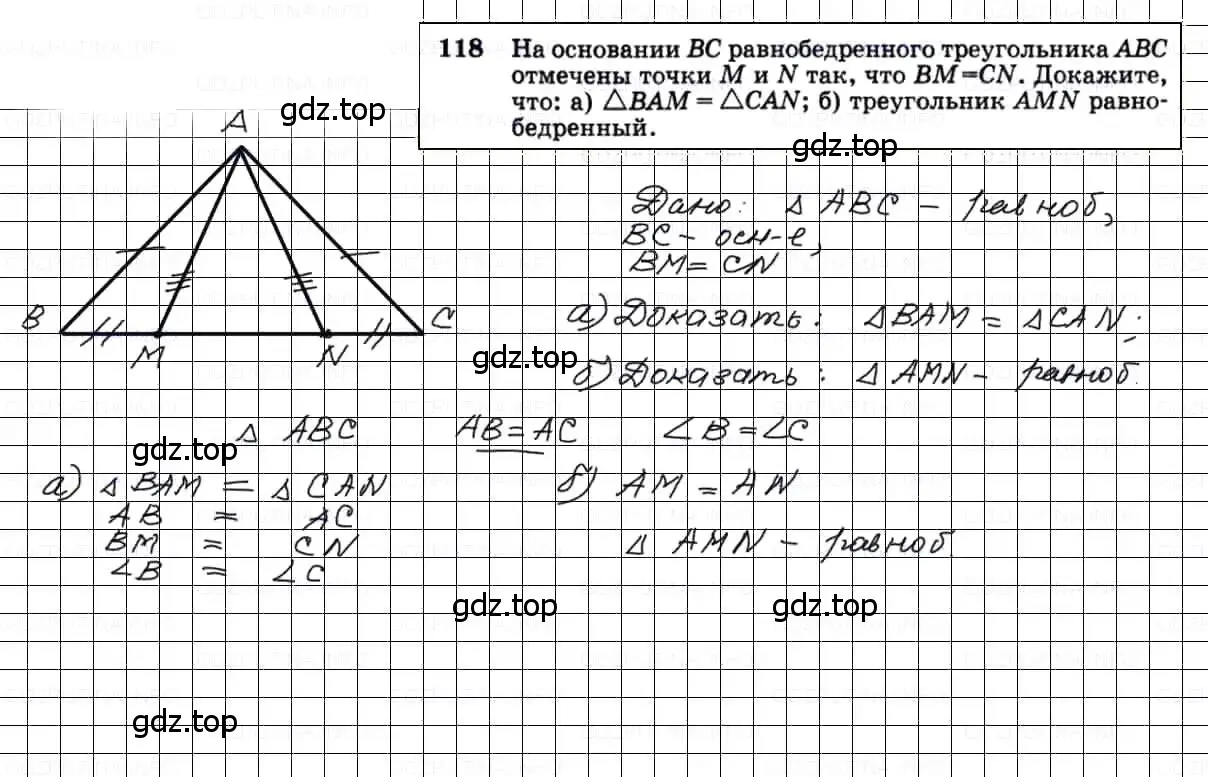 118 На основании BC равнобедренного треугольника ABC
отмечены точки M и N так, что BM=CN. Докажите,
что: а) △BAM = △CAN; б) треугольник AMN равно-
бедренный.
gdz.top
gdz.top
A
B
M
N
C
Дано: △ ABC – равноб,
BC – осн-е,
BM = CN
а) Доказать: △BAM = △CAN;
gdz.top
б) Доказать: △ AMN – равноб.
△ ABC AB = AC ∠B = ∠C
gdz.top
а) △ BAM = △ CAN
AB = AC
BM = CN
∠B = ∠C
б) AM = AN
△ AMN – равноб.
gdz.top
gdz.top
gdz.top